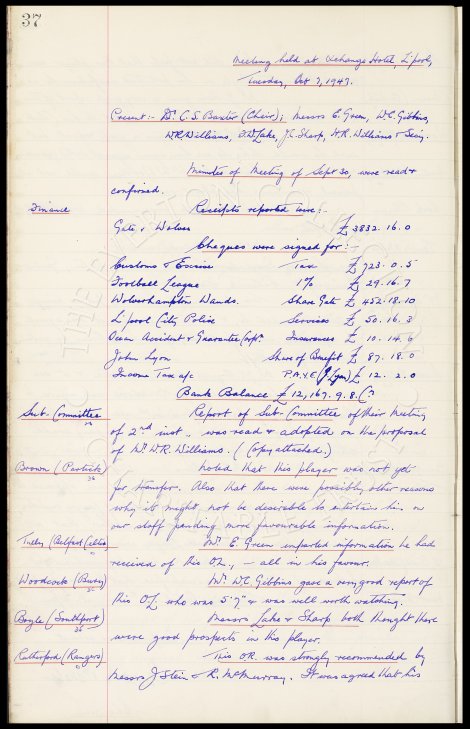 37
Meeting held at Exchange Hotel, L'pool,
Tuesday, Oct 7, 1947.
Present:- Dr C. S. Baxter (Chair); Messrs E. Green, W.C. Gibbins,
W.R. Williams, J.C. Sharp, H.R. Williams & Secy.
Minutes of Meeting of Sept 30, were read &
confirmed.
Finance
Receipts reported were:-
Gate v Wolves £3832.16.0
Cheques were signed for:-
Customs & Excise Tax £723.0.5
Football League 1% £29.16.7
Wolverhampton Wands. Share Gate £452.18.10
L'pool City Police Services £50.16.3
Ocean Accident & Guarantee Corpn. Insurances £10.14.6
John Lyon Share of Benefit £87.18.0
Income Tax a/c P.A.Y.E (J Lyon) £12.2.0
Bank Balance £12,167.9.8.
Sub. Committee
Report of Sub. Committee of their Meeting
of 2nd inst, was read & adopted on the proposal
of Mr. W.R. Williams. (Copy attached.)
Brown (Partick)
Noted that this player was not yet
for transfer. Also that there were possibly other reasons
why it might not be desirable to entertain him on
our staff pending more favourable information.
(Belfast Celtic)
Mr. E. Green imparted information he had
received of this O.L, - all in his favour.
Woodcock (Bury)
Mr. W.C. Gibbins gave a very good report of
this O.L who was 5'7" & was well worth watching.
Boyle (Southport)
Messrs Lake & Sharp both thought there
were good prospects in this player.
Rutherford (Rangers)
This O.R. was strongly recommended by
Messrs J Stein & R. McMurray. It was agreed that his